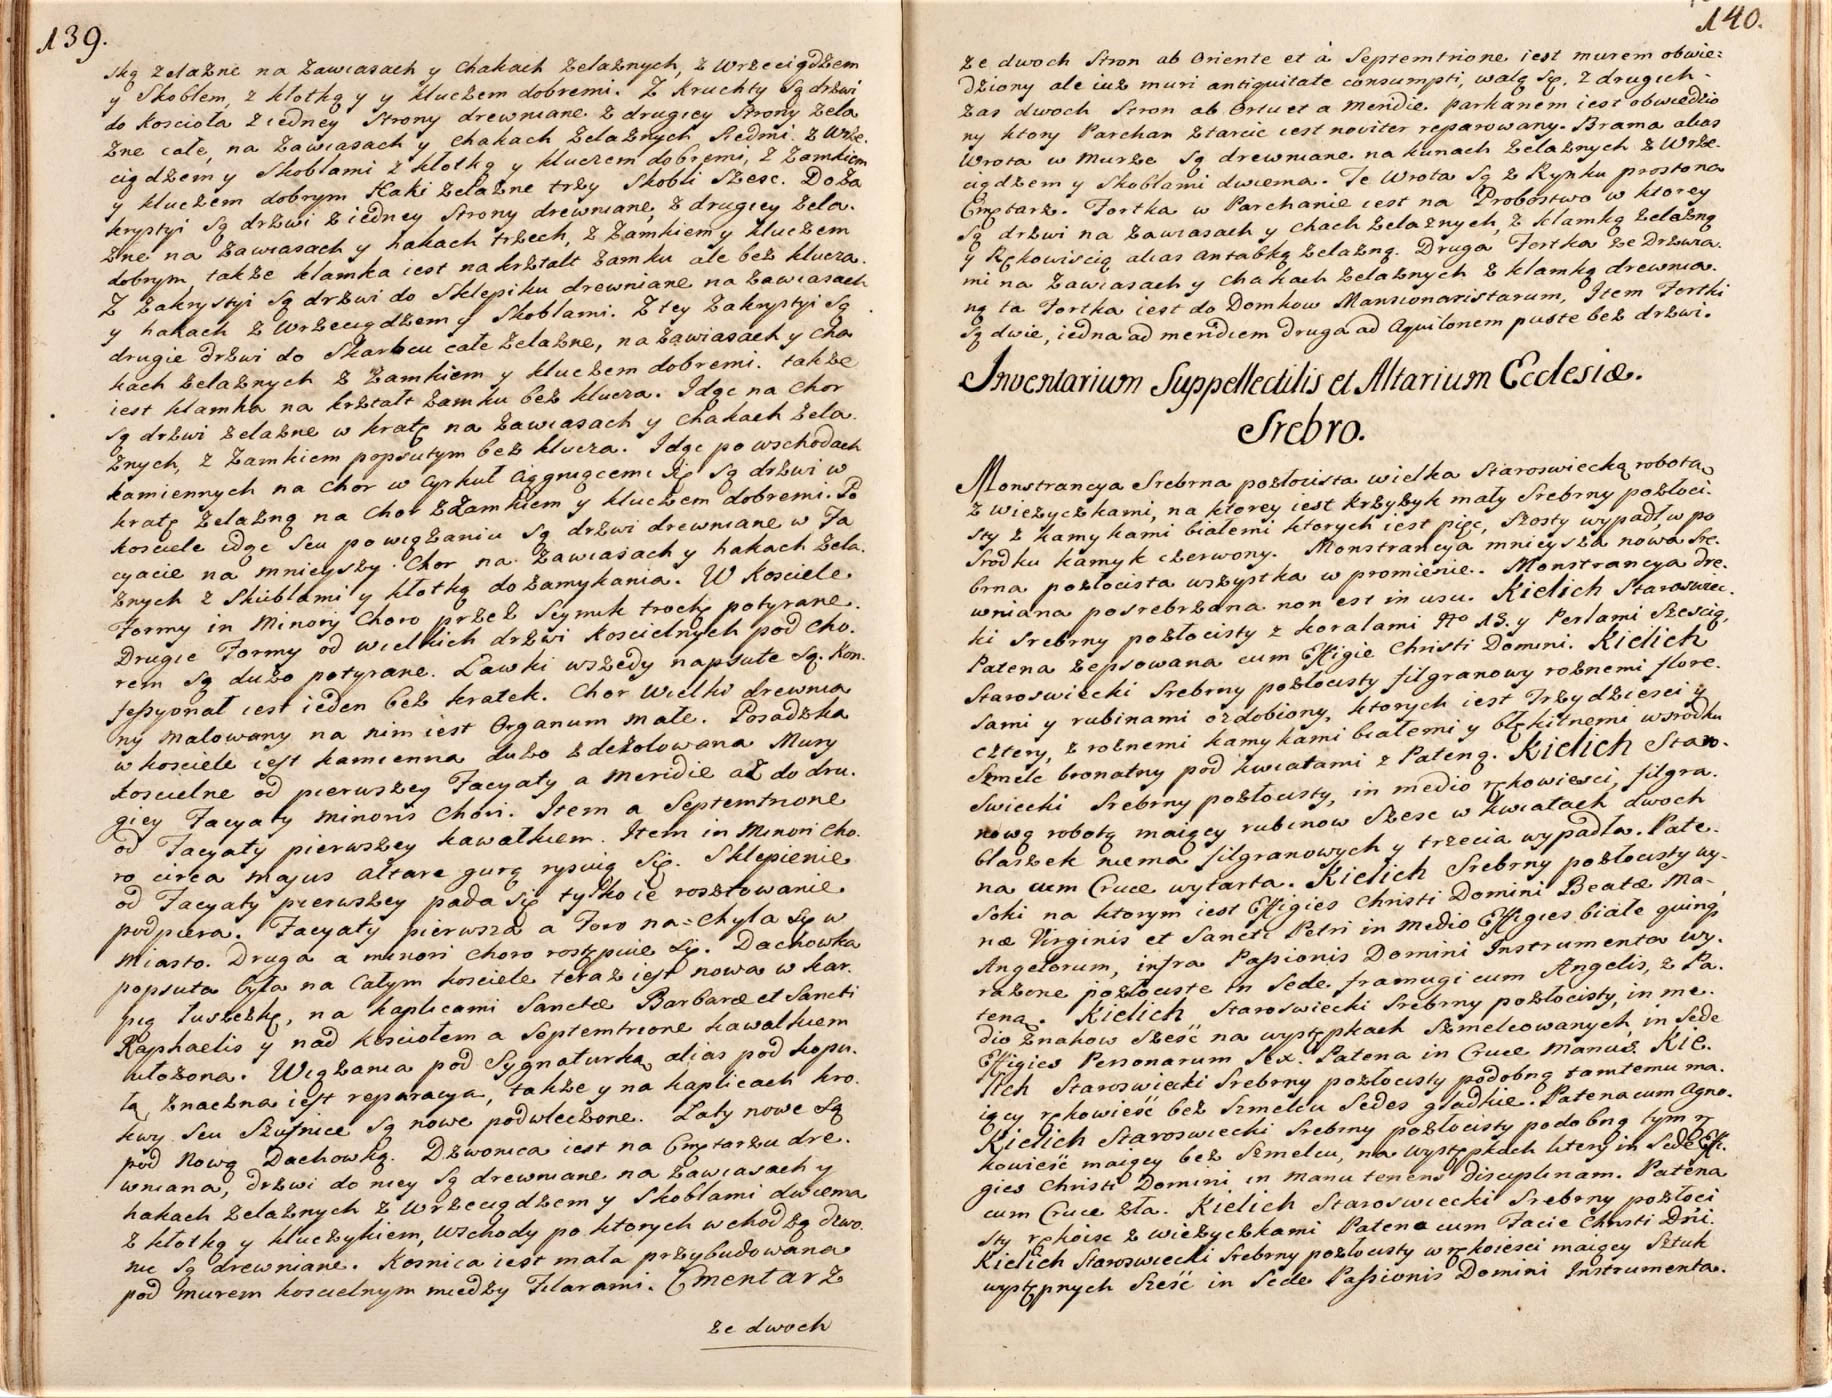 139.
ską zelazne na zawiasach y chakach zelaznych, z wrzeciądzem
y skoblem, z kłotką y y kluczem dobremi. Z kruchty są drzwi
do koscioła z iedney strony drewniane z drugiey strony zela
zne całe, na zawiasach y chakach zelaznych siedmi z wrze.
ciądzem y skoblami z kłotką y kluczem dobremi, z zamkiem
y kluczem dobrym Haki zelazne trzy skobli szesc. Do za
krystyi są drzwi z iedney strony drewniane, z drugiey zela.
zne na zawiasach y hakach trzech, z zamkiem y kluczem
dobrym, także klamka iest na krztałt zamku ale bez klucza.
Z zakrystyi są drzwi do sklepiku drewniane na zawiasach
y hakach z wrzeciądzem y skoblami. Z tey zakrystyi są
drugie drzwi do skarbcu całe zelazne, na zawiasach y cha
kach zelaznych z zamkiem y kluczem dobremi. także
iest klamka na krztałt zamku bez klucza. Idąc na chor
są drzwi zelazne w kratę na zawiasach y chakach zela.
znych, z zamkiem popsutym bez klucza. Idąc po wschodach
kamiennych na chor w cyrkuł ciągnącemi się są drzwi w
kratę zelazną na chor z zamkiem y kluczem dobremi. Po
kosciele idąc seu po wiązaniu są drzwi drewniane w Fa
cyacie na mnieyszy chor na zawiasach y hakach zela.
znych z skublami y kłotką do zamykania. W kosciele
Formy in minori choro przez seymik trochę potyrane.
Drugie Formy od wielkich drzwi koscielnych pod cho.
rem są dużo potyrane. Ławki wszędy napsute są. Kon.
fessyonał iest ieden bez kratek. Chor wielki drewnia
ny malowany na nim iest organum małe. Posadzka
w kosciele iest kamienna dużo zdezolowana Mury
koscielne od pierwszey Facyaty a meridie aż do dru.
giey Facyaty minoris chori. Item a septemtrione
od Facyaty pierwszey kawałkiem. Item in minori cho.
ro circa majus altare gurą rysuią się. Sklepienie
od Facyaty pierwszey pada się tylko ie rosztowanie
podpiera. Facyaty pierwsza a Foro na=chyla się w
miasto. Druga a minori choro rostępuie się. Dachowka
popsuta była na całym kosciele teraz iest nowa w kar.
pią łuszczkę, na kaplicami Sanctæ Barbaræ et Sancti
Raphaelis y nad kosciołem a septemtrione kawałkiem
ułożona. Wiązania pod sygnaturką alias pod kopu.
łą znaczna iest reparacya, także y na kaplicach kro.
kwy seu szufnice są nowe podwleczone. Łaty nowe są
pod nową Dachowką. Dzwonica iest na Cmętarzu dre.
wniana, drzwi do niey są drewniane na zawiasach y
hakach zelaznych z wrzeciądzem y skoblami dwiema
z kłotką y kluczykiem, wschody po ktorych wchodzą dzwo.
nic są drewniane. Kosnica iest mała przybudowana
pod murem koscielnym miedzy Filarami. Cmentarz
ze dwoch
140.
ze dwoch stron ab oriente et à septemtrione iest murem obwie:
dziony ale iuż muri antiquitate consumpti, walą się, z drugich
zas dwoch stron ab ortu et a meridie parkanem iest obwiedzio
ny ktory Parchan z tarcic iest noviter reparowany. Brama alias
wrota w murze są drewniane na kunach zelaznych z wrze.
ciądzem y skoblami dwiema. Te wrota są z Rynku prosto na
Cmętarz. Fortka w Parchanie iest na Probostwo w ktorey
są drzwi na zawiasach y chach zelaznych, z klamką zelazną
y Rękowiscią alias antabką zelazną. Druga Fortka ze drzwia.
mi na zawiasach y chakach zelaznych z klamką drewnia.
ną ta Fortka iest do Domkow Mansionaristarum, Item Fortki
są dwie, iedna ad meridiem druga ad Aquilonem puste bez drzwi.
Inventarium Suppellectilis et Altarium Ecclesiæ.
Srebro.
Monstrancya srebrna pozłocista wielka staroswiecką robotą
z wieżyczkami, na ktorey iest krzyżyk mały srebrny pozłoci.
sty z kamykami białemi ktorych iest pięc, szosty wypadł, w po
srodku kamyk czerwony. Monstrancya mnieysza nowa sre.
brna pozłocista wszystka w promienie. Monstrancya dre.
wniana posrebrzana non est in usu. Kielich staroswiec.
ki srebrny pozłocisty z koralami No 13. y Perlami szescią,
Patena zepsowana cum Effigie Christi Domini. Kielich
staroswiecki srebrny pozłocisty filgranowy rożnemi flore.
sami y rubinami ozdobiony, ktorych iest trzydziesci y
cztery, z rożnemi kamykami białemi y błękitnemi wsrodku
szmelc bronatny pod kwiatami z Pateną. Kielich staro.
swiecki srebrny pozłocisty, in medio rękowiesci, filgra.
nową robotą maiący rubinow szesc w kwiatach dwoch
blaszek niema filgranowych y trzecia wypadła. Pate.
na cum Cruce wytarta. Kielich srebrny pozłocisty wy.
soki na ktorym iest Effigies Christi Domini Beatæ Ma-
riæ Virginis et Sancti Petri in medio Effigies białe quinq
Angelorum, infra Passionis Domini Instrumenta wy.
rażone pozłociste in sede framugi cum Angelis, z Pa.
teną. Kielich staroswiecki srebrny pozłocisty, in me.
dio znakow sześć na występkach szmelcowanych in sede
Effigies Personarum sex. Patena in Cruce manus. Kie.
lich staroswiecki srebrny pozłocisty podobną tamtemu ma.
iący rękowieść bez szmelcu sedes gładkie. Patena cum Agno.
Kielich staroswiecki srebrny pozłocisty podobną tym rę
kowieść maiący bez szmelcu, na występkach litery in sede Effi.
gies Christi Domini in manu tenens disciplinam. Patena
cum Cruce zła. Kielich staroswiecki srebrny pozłoci
sty rękoisc z wieżyczkami Patena cum Facie Christi Dni.
Kielich staroswiecki srebrny pozłocisty w rękoiesci maiący sztuk
występnych sześć in sede Passionis Domini Instrumenta.